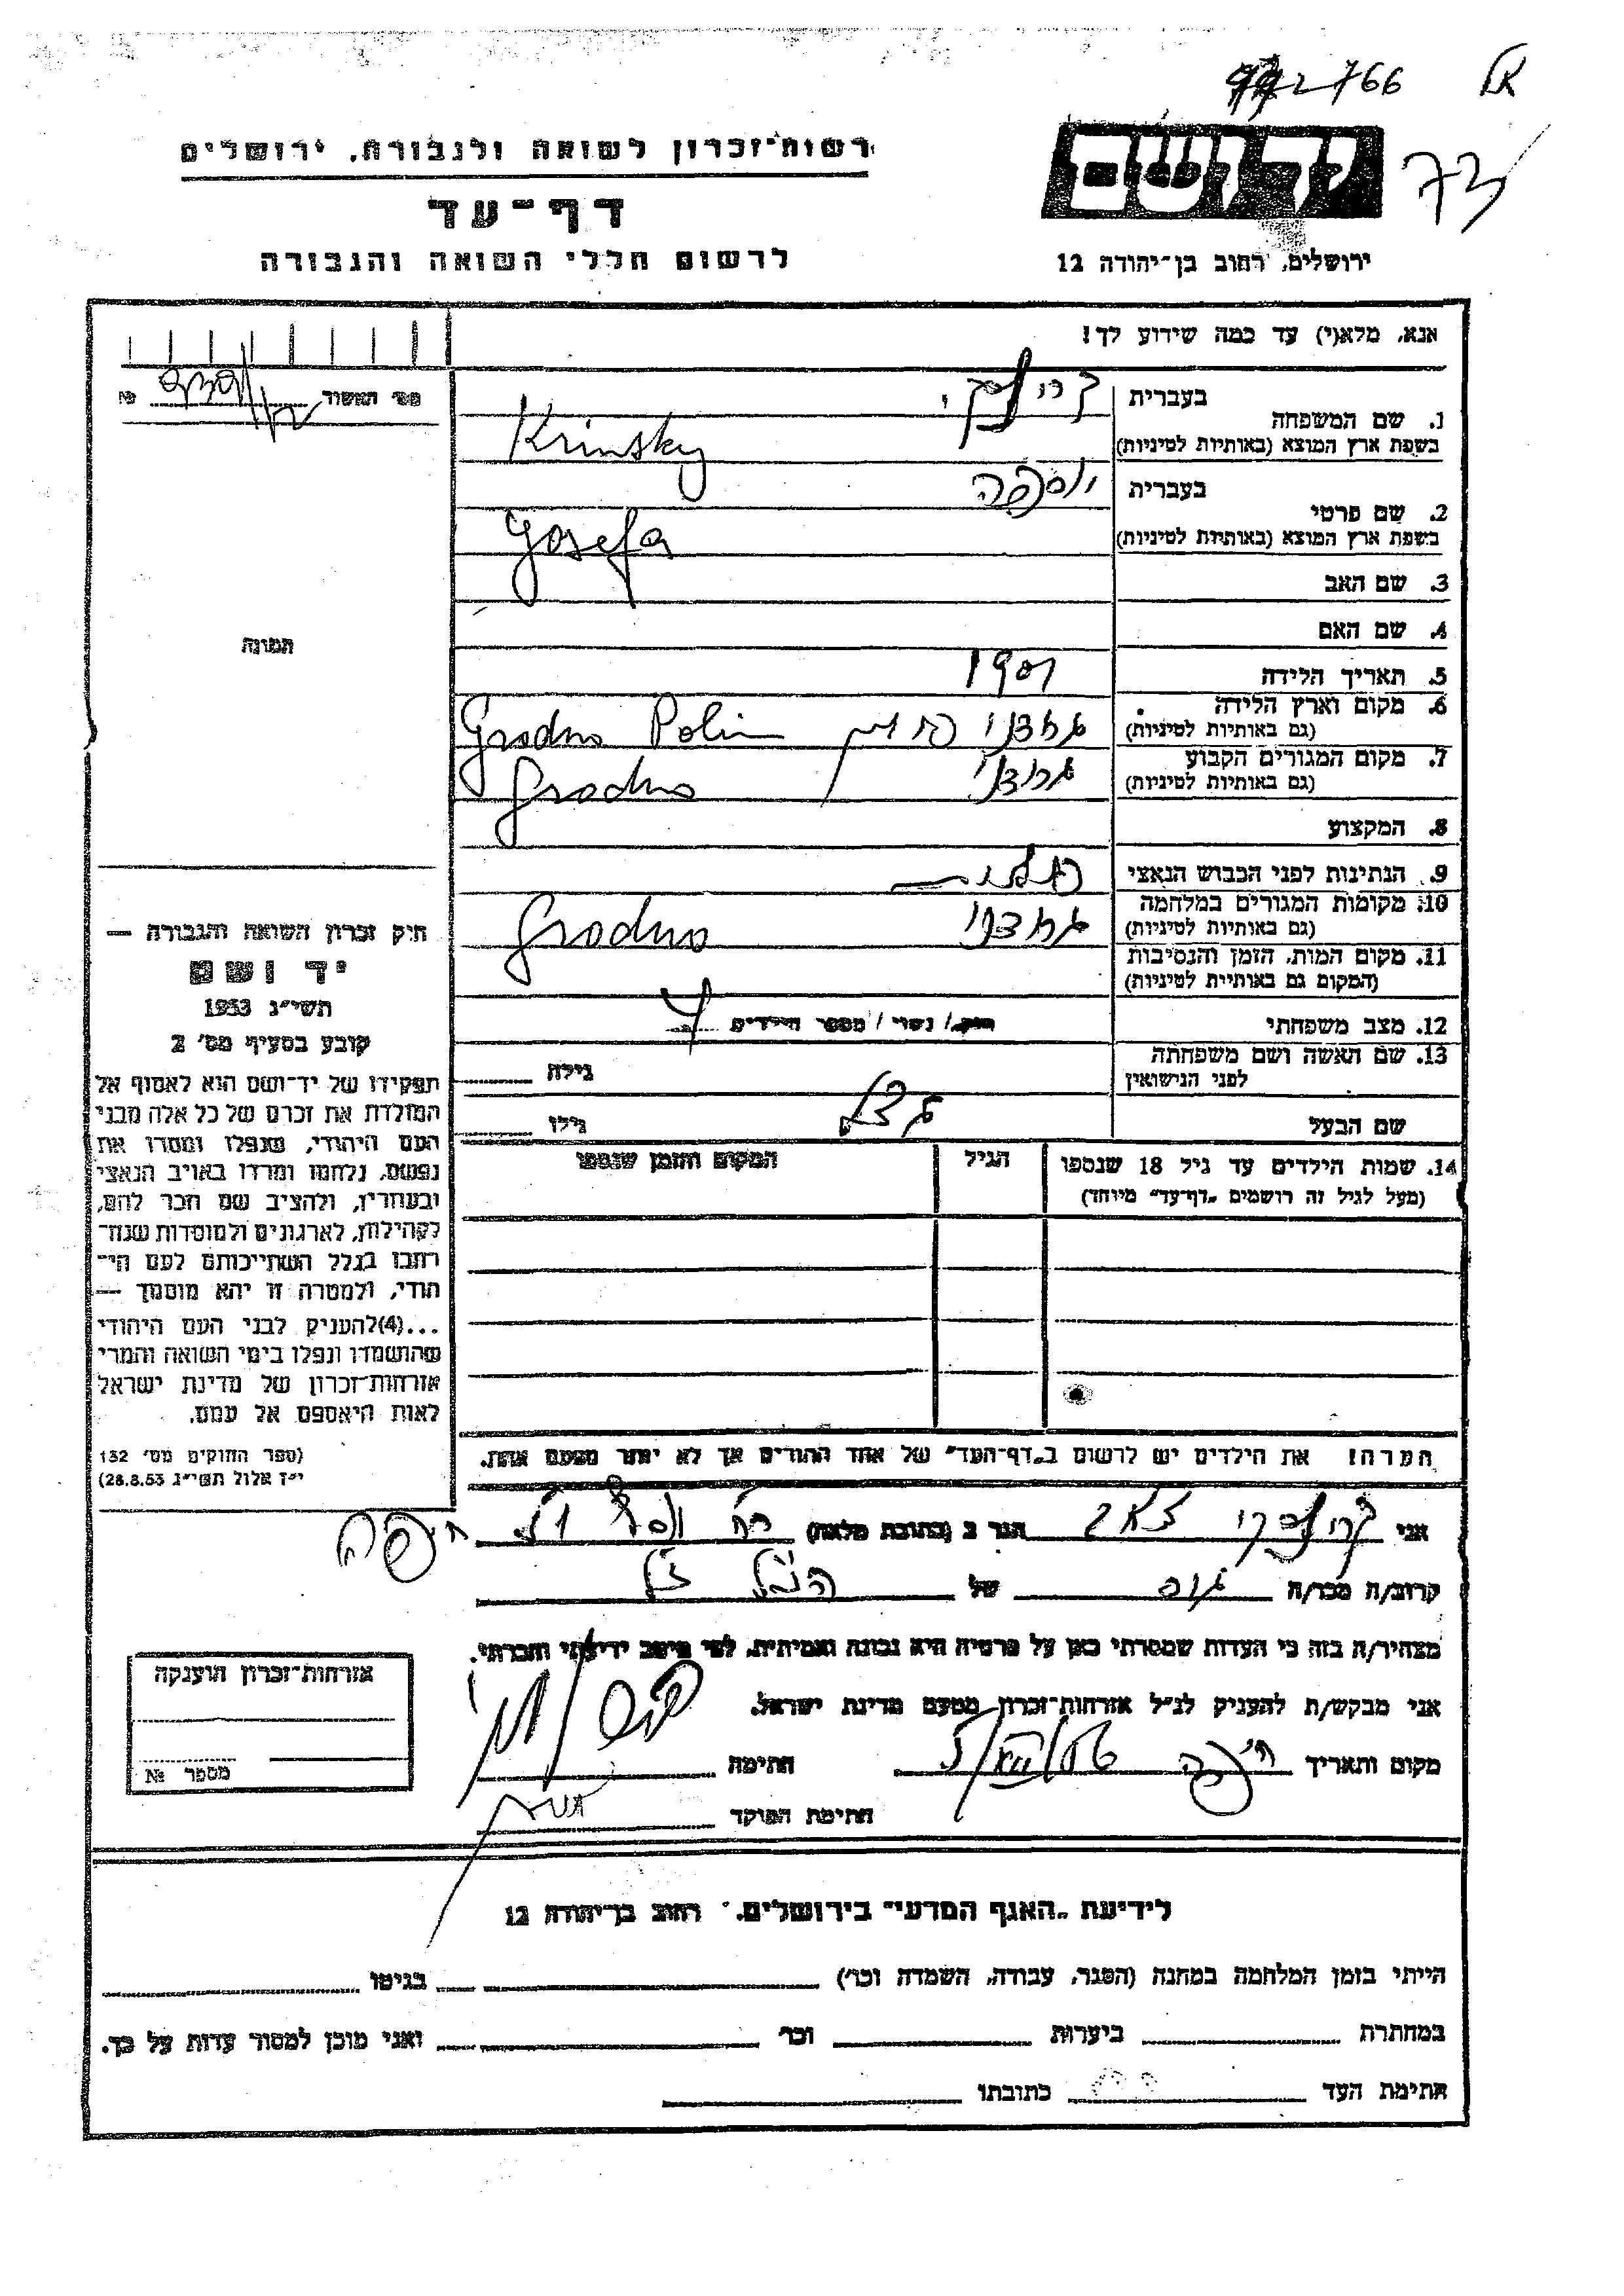 992766
73
רשות־זכרון לשואה ולגבורה. ירושלים
דף־עד
לרשום חללי השואה והגבורה
יד ושם
ירושלים, רחוב בן־יהודה 12
אנא, מלא(י) עד כמה שידוע לך!
מס׳ האשור № 
תמונה
1. שם המשפחה בעברית קרינסקי
בשפת ארץ המוצא (באותיות לטיניות) Krinsky
2. שם פרטי בעברית יוספה
בשפת ארץ המוצא (באותיות לטיניות) Josefa
3. שם האב
4. שם האם
5. תאריך הלידה 1901
6. מקום וארץ הלידה (גם באותיות לטיניות) גרודנו פולין Grodno Polin
7. מקום המגורים הקבוע (גם באותיות לטיניות) גרודנו Grodno
8. המקצוע
9. הנתינות לפני הכבוש הנאצי פולנית
10. מקומות המגורים במלחמה (גם באותיות לטיניות) גרודנו Grodno
11. מקום המות, הזמן והנסיבות (המקום גם באותיות לטיניות)
12. מצב משפחתי רווק/ נשוי/ מספר הילדים
13. שם האשה ושם משפחתה לפני הנישואין גילה
שם הבעל גילו
14. שמות הילדים עד גיל 18 שנספו הגיל המקום והזמן שנספו
(מעל לגיל זה רושמים „דף־עד״ מיוחד)
הערה! את הילדים יש לרשום ב„דף־העד״ של אחד ההורים אך לא יותר מפעם אחת.
חוק זכרון השואה והגבורה —
יד ושם
תשי״ג 1953
קובע בסעיף מס׳ 2
תפקידו של יד־ושם הוא לאסוף אל
המולדת את זכרם של כל אלה מבני
העם היהודי, שנפלו ומסרו את
נפשם, נלחמו ומרדו באויב הנאצי
ובעוזריו, ולהציב שם וזכר להם,
לקהילות, לארגונים ולמוסדות שנח־
רבו בגלל השתייכותם לעם הי־
הודי, ולמטרה זו יהא מוסמך —
...(4)להעניק לבני העם היהודי
שהושמדו ונפלו בימי השואה והמרי
אזרחות־זכרון של מדינת ישראל
לאות היאספם אל עמם.
(ספר החוקים מס׳ 132
י״ז אלול תשי״ג 28.8.53)
אני קרינסקי זאב הגר ב (כתובת מלאה) רח׳ חיפה
קרוב/ה מכר/ה של הנ״ל
מצהיר/ה בזה כי העדות שמסרתי כאן על פרטיה היא נכונה ואמיתית, לפי מיטב ידיעתי והכרתי.
אני מבקש/ת להעניק לנ״ל אזרחות־זכרון מטעם מדינת ישראל.
מקום ותאריך חיפה חתימה
חתימת הפוקד
אזרחות־זכרון הוענקה
מספר №
לידיעת „האגף המדעי״ בירושלים, רחוב בן־יהודה 12
הייתי בזמן המלחמה במחנה (הסגר, עבודה, השמדה וכו׳) בגיטו
במחתרת ביערות וכו׳ ואני מוכן למסור עדות על כך.
חתימת העד כתובתו